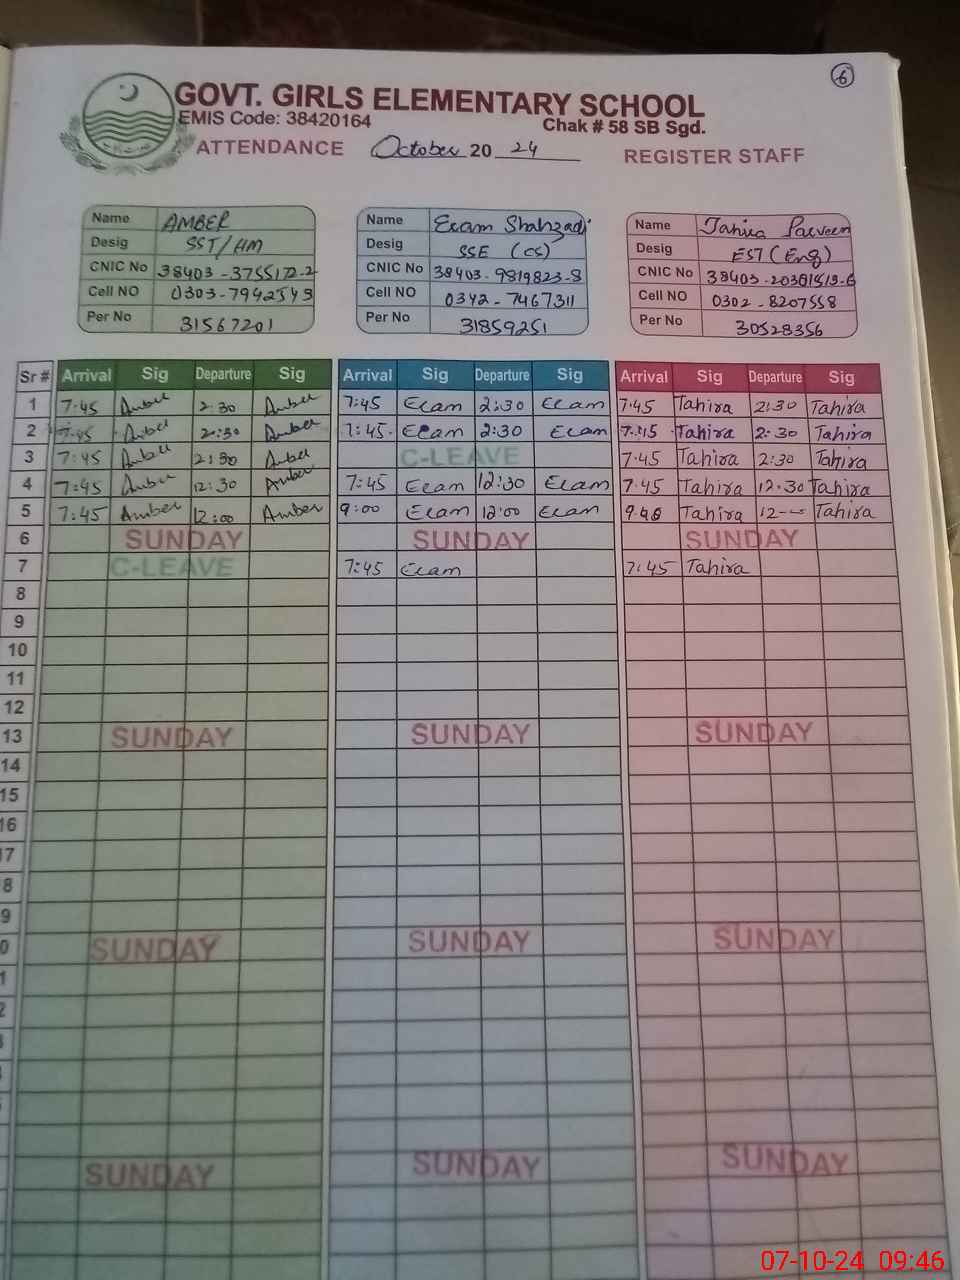 6
GOVT. GIRLS ELEMENTARY SCHOOL
EMIS Code: 38420164
Chak # 58 SB Sgd.
ATTENDANCE October 20 24 REGISTER STAFF
Name AMBER
Desig SST/HM
CNIC No 38403-3755172-2
Cell NO 0303-7942549
Per No 31567201
Name Eram Shahzadi
Desig SSE (CS)
CNIC No 38403-9819823-8
Cell NO 0342-7467311
Per No 31859251
Name Tahira Parveen
Desig EST (Eng)
CNIC No
Cell NO 0302-8207558
Per No 30528356
Sr # Arrival Sig Departure Sig Arrival Sig Departure Sig Arrival Sig Departure Sig
1 7:45 Amber 2:30 Amber 7:45 Eram 2:30 Eram 7:45 Tahira 2:30 Tahira
2 7:45 Amber 2:30 Amber 7:45 Eram 2:30 Eram 7:45 Tahira 2:30 Tahira
3 7:45 Amber 2:30 Amber C-LEAVE 7:45 Tahira 2:30 Tahira
4 7:45 Amber 12:30 Amber 7:45 Eram 12:30 Eram 7:45 Tahira 12:30 Tahira
5 7:45 Amber 12:00 Amber 9:00 Eram 12:00 Eram Tahira Tahira
6 SUNDAY SUNDAY SUNDAY
7 C-LEAVE 7:45 Eram 7:45 Tahira
8
9
10
11
12
13 SUNDAY SUNDAY SUNDAY
14
15
16
7
8
9
0 SUNDAY SUNDAY SUNDAY
1
2
SUNDAY SUNDAY SUNDAY
07-10-24 09:46